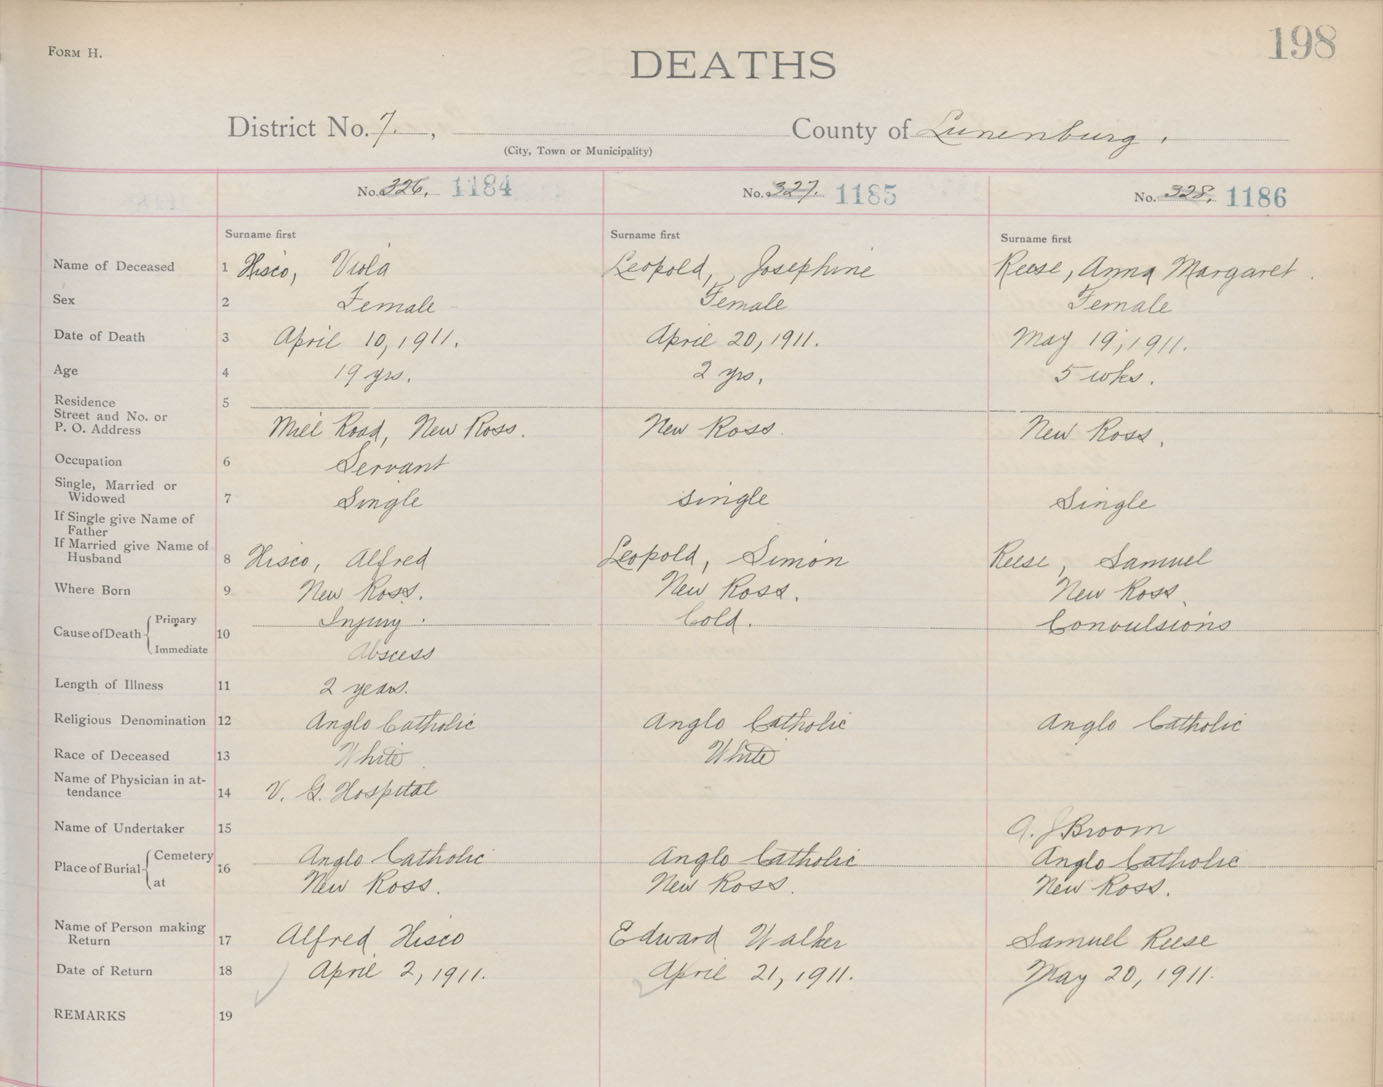 FORM H.
198
DEATHS
District No. 7. , County of Lunenburg.
(City, Town or Municipality)
No. 326. 1184 No. 327. 1185 No. 328. 1186
Surname first Surname first Surname first
Name of Deceased 1 Hisco, Viola Leopold, Josephine Reese, Anna Margaret.
Sex 2 Female Female Female
Date of Death 3 April 10, 1911. April 20, 1911. May 19, 1911.
Age 4 19 yrs. 2 yrs. 5 wks.
Residence 5
Street and No. or
P. O. Address Mill Road, New Ross. New Ross. New Ross.
Occupation 6 Servant
Single, Married or
Widowed 7 Single single Single
If Single give Name of
Father
If Married give Name of
Husband 8 Hisco, Alfred Leopold, Simon Reese, Samuel
Where Born 9 New Ross. New Ross. New Ross.
Cause of Death Primary 10 Injury. Cold. Convulsions
Immediate Abscess
Length of Illness 11 2 years.
Religious Denomination 12 Anglo Catholic Anglo Catholic Anglo Catholic
Race of Deceased 13 White White
Name of Physician in at-
tendance 14 V. G. Hospital
Name of Undertaker 15 A. J Broom
Place of Burial Cemetery 16 Anglo Catholic Anglo Catholic Anglo Catholic
at New Ross. New Ross. New Ross.
Name of Person making
Return 17 Alfred Hisco Edward Walker Samuel Reese
Date of Return 18 April 2, 1911. April 21, 1911. May 20, 1911.
REMARKS 19